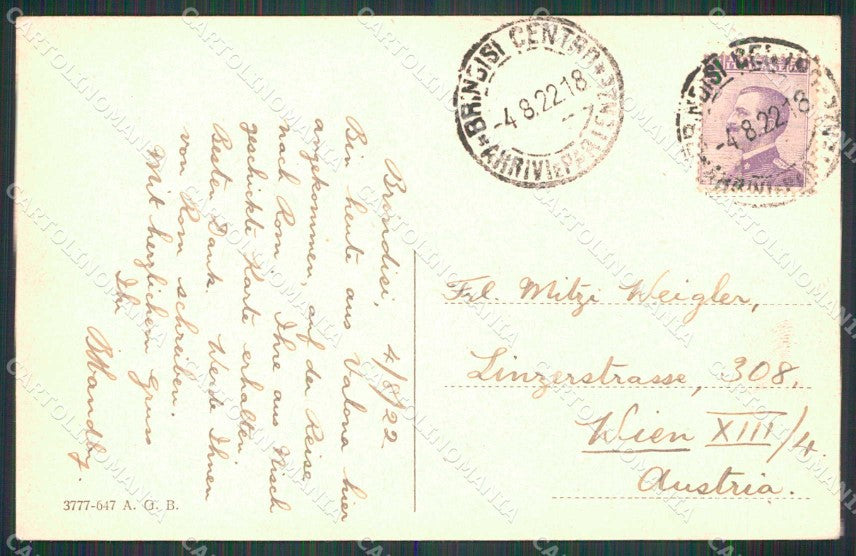 Brindisi, 4/8/22
Bin heute aus Valona hier
angekommen, auf der Reise
nach Rom. Ihre aus Nisch
geschickte Karte erhalten.
Besten Dank. Werde Ihnen
von Rom schreiben.
Mit herzlichem Gruss
Ihr
BRINDISI CENTRO
-4.8.22.18
ARRIVI E PARTENZE
BRINDISI CENTRO
-4.8.22.18
Frl. Mitzi Weigler,
Linzerstrasse, 308.
Wien XIII/4.
Austria.
3777-647 A. G. B.
CARTOLINOMANIA